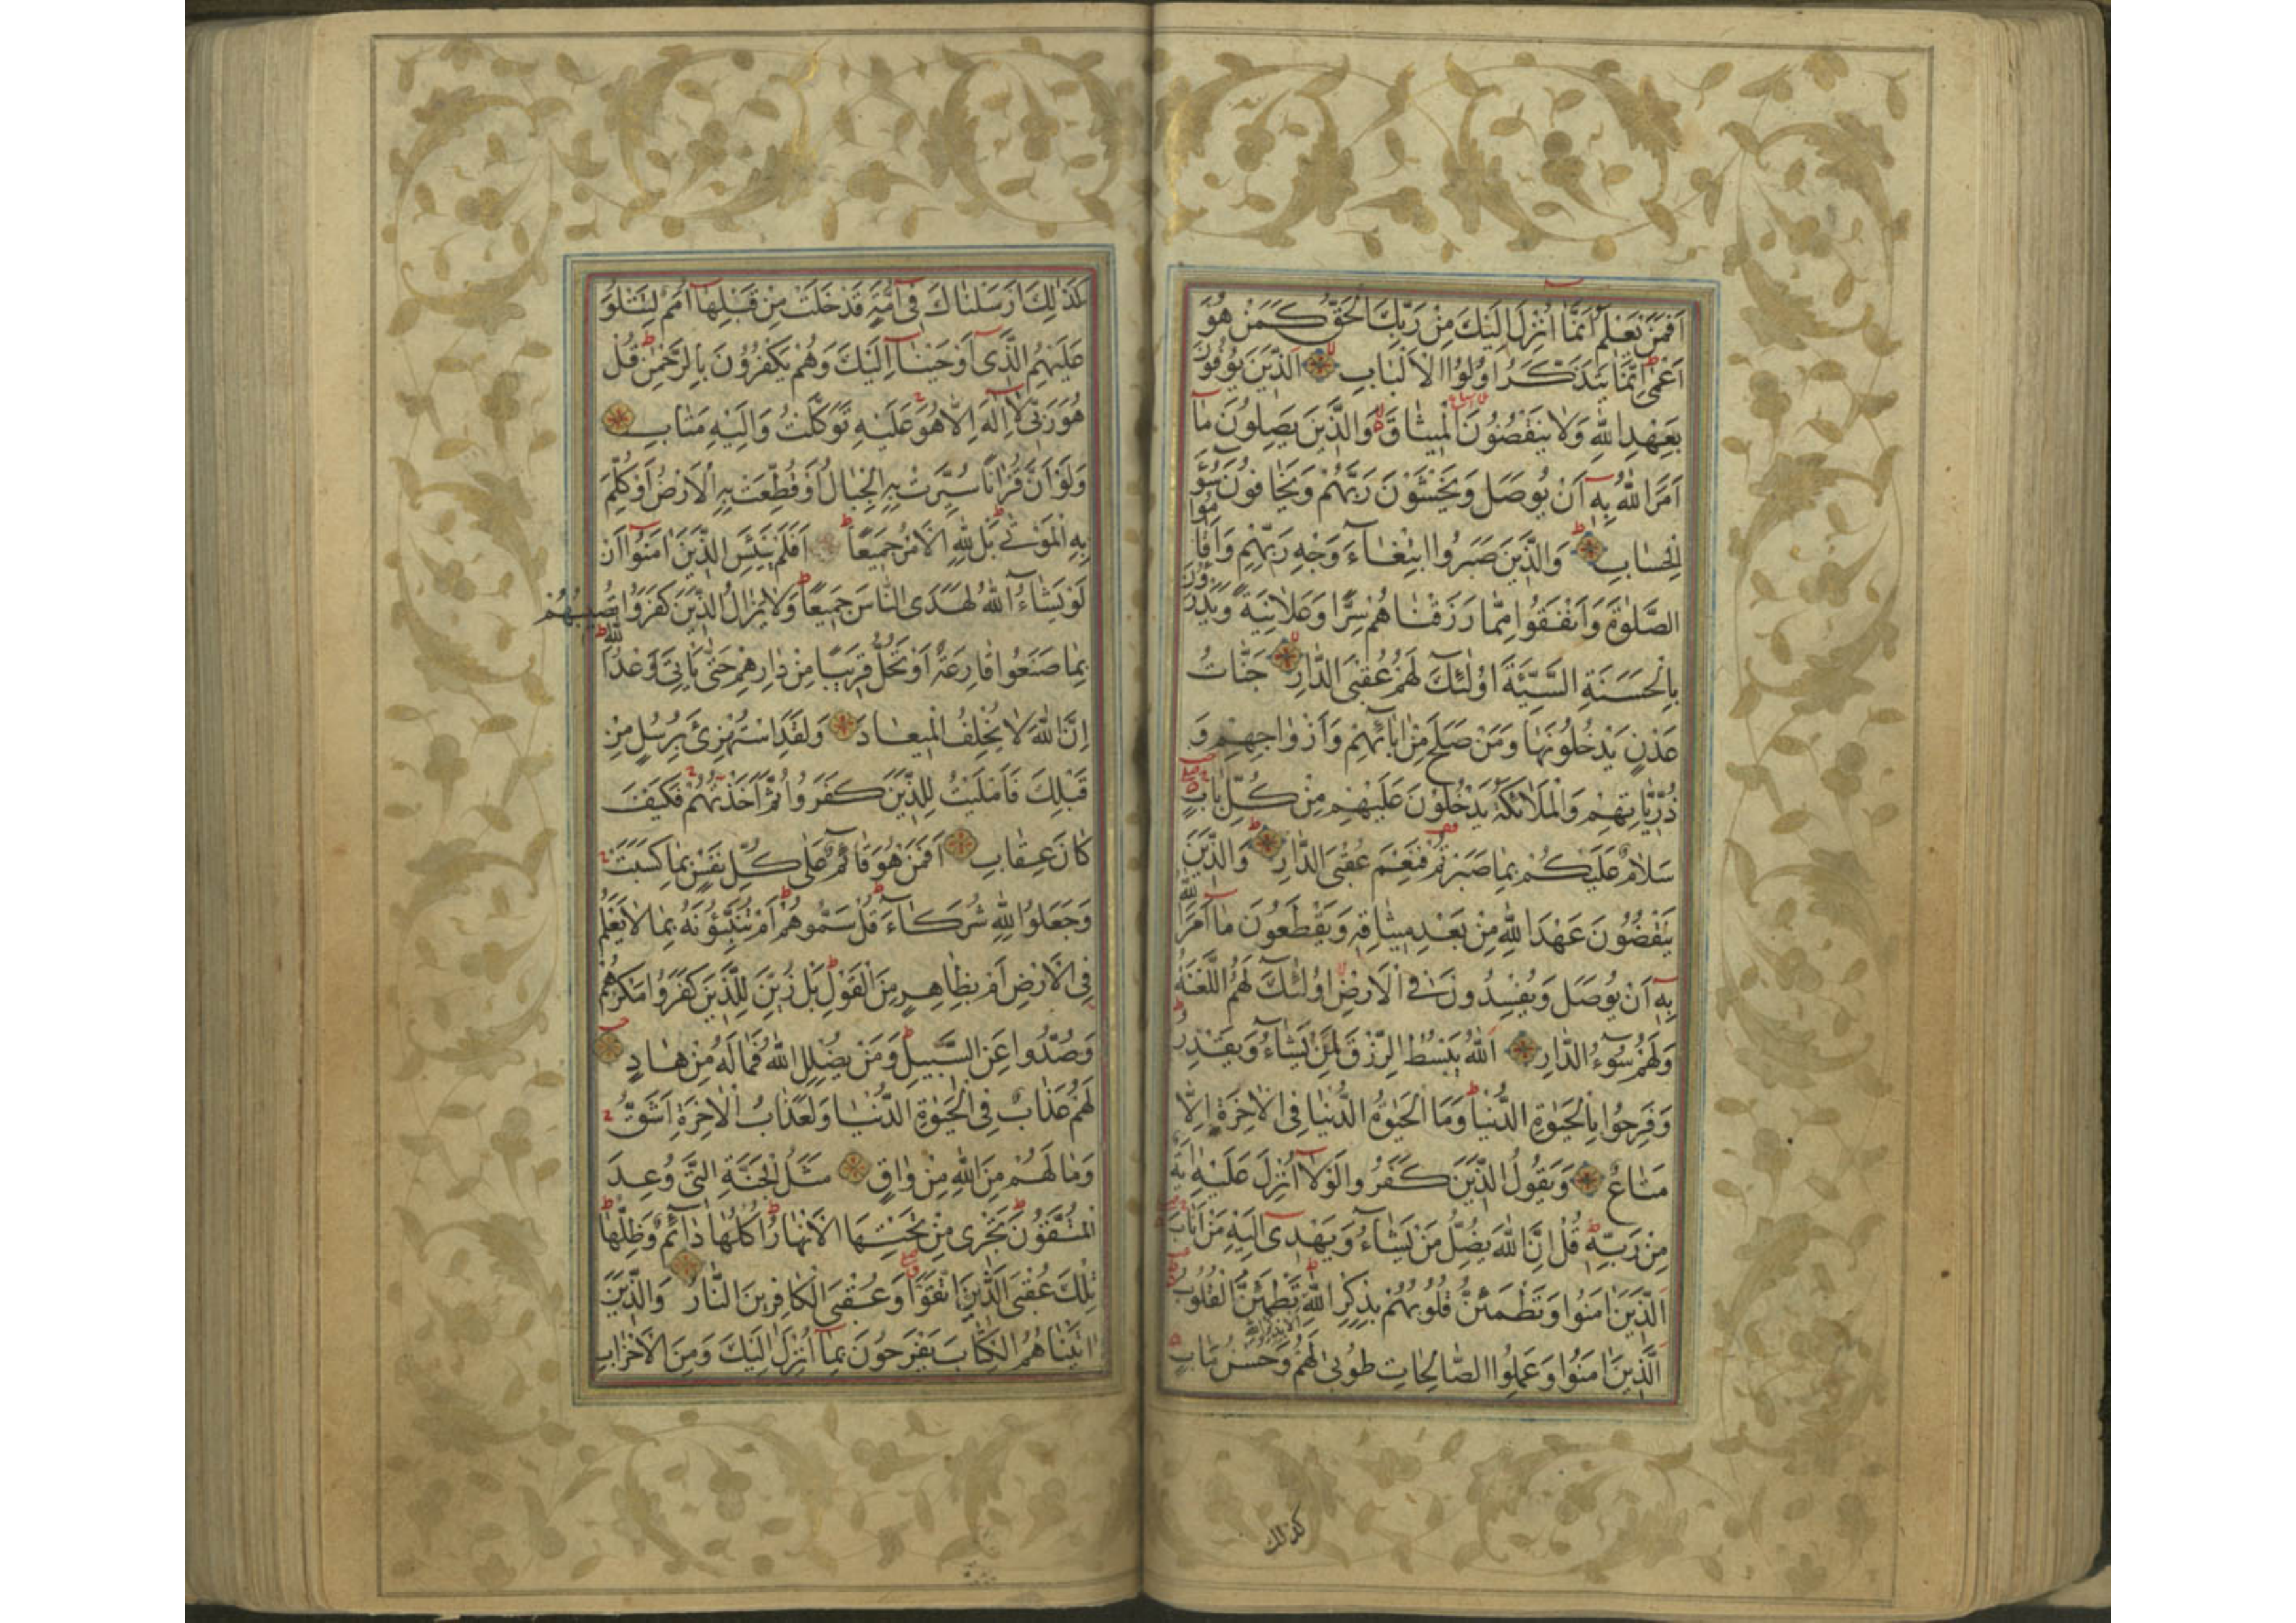 اَفَمَنْ يَعْلَمُ اَنَّمَا اُنْزِلَ اِلَيْكَ مِنْ رَبِّكَ الْحَقُّ كَمَنْ هُوَ
اَعْمٰى اِنَّمَا يَتَذَكَّرُ اُولُوا الْاَلْبَابِ اَلَّذِينَ يُوفُونَ
بِعَهْدِ اللهِ وَلَا يَنْقُضُونَ الْمِيثَاقَ وَالَّذِينَ يَصِلُونَ مَا
اَمَرَ اللهُ بِهِ اَنْ يُوصَلَ وَيَخْشَوْنَ رَبَّهُمْ وَيَخَافُونَ سُوءَ
الْحِسَابِ وَالَّذِينَ صَبَرُوا ابْتِغَاءَ وَجْهِ رَبِّهِمْ وَاَقَامُوا
الصَّلٰوةَ وَاَنْفَقُوا مِمَّا رَزَقْنَاهُمْ سِرًّا وَعَلَانِيَةً وَيَدْرَؤُنَ
بِالْحَسَنَةِ السَّيِّئَةَ اُولٰئِكَ لَهُمْ عُقْبَى الدَّارِ جَنَّاتُ
عَدْنٍ يَدْخُلُونَهَا وَمَنْ صَلَحَ مِنْ اٰبَائِهِمْ وَاَزْوَاجِهِمْ وَ
ذُرِّيَّاتِهِمْ وَالْمَلَائِكَةُ يَدْخُلُونَ عَلَيْهِمْ مِنْ كُلِّ بَابٍ
سَلَامٌ عَلَيْكُمْ بِمَا صَبَرْتُمْ فَنِعْمَ عُقْبَى الدَّارِ وَالَّذِينَ
يَنْقُضُونَ عَهْدَ اللهِ مِنْ بَعْدِ مِيثَاقِهِ وَيَقْطَعُونَ مَا اَمَرَ اللهُ
بِهِ اَنْ يُوصَلَ وَيُفْسِدُونَ فِي الْاَرْضِ اُولٰئِكَ لَهُمُ اللَّعْنَةُ
وَلَهُمْ سُوءُ الدَّارِ اَللهُ يَبْسُطُ الرِّزْقَ لِمَنْ يَشَاءُ وَيَقْدِرُ
وَفَرِحُوا بِالْحَيٰوةِ الدُّنْيَا وَمَا الْحَيٰوةُ الدُّنْيَا فِي الْاٰخِرَةِ اِلَّا
مَتَاعٌ وَيَقُولُ الَّذِينَ كَفَرُوا لَوْلَا اُنْزِلَ عَلَيْهِ اٰيَةٌ
مِنْ رَبِّهِ قُلْ اِنَّ اللهَ يُضِلُّ مَنْ يَشَاءُ وَيَهْدِي اِلَيْهِ مَنْ اَنَابَ
اَلَّذِينَ اٰمَنُوا وَتَطْمَئِنُّ قُلُوبُهُمْ بِذِكْرِ اللهِ اَلَا بِذِكْرِ اللهِ تَطْمَئِنُّ الْقُلُوبُ
اَلَّذِينَ اٰمَنُوا وَعَمِلُوا الصَّالِحَاتِ طُوبٰى لَهُمْ وَحُسْنُ مَاٰبٍ
كذلك
كَذٰلِكَ اَرْسَلْنَاكَ فِي اُمَّةٍ قَدْ خَلَتْ مِنْ قَبْلِهَا اُمَمٌ لِتَتْلُوَ
عَلَيْهِمُ الَّذِي اَوْحَيْنَا اِلَيْكَ وَهُمْ يَكْفُرُونَ بِالرَّحْمٰنِ قُلْ
هُوَ رَبِّي لَا اِلٰهَ اِلَّا هُوَ عَلَيْهِ تَوَكَّلْتُ وَاِلَيْهِ مَتَابِ
وَلَوْ اَنَّ قُرْاٰنًا سُيِّرَتْ بِهِ الْجِبَالُ اَوْ قُطِّعَتْ بِهِ الْاَرْضُ اَوْ كُلِّمَ
بِهِ الْمَوْتٰى بَلْ لِلّٰهِ الْاَمْرُ جَمِيعًا اَفَلَمْ يَيْئَسِ الَّذِينَ اٰمَنُوا اَنْ
لَوْ يَشَاءُ اللهُ لَهَدَى النَّاسَ جَمِيعًا وَلَا يَزَالُ الَّذِينَ كَفَرُوا تُصِيبُهُمْ
بِمَا صَنَعُوا قَارِعَةٌ اَوْ تَحُلُّ قَرِيبًا مِنْ دَارِهِمْ حَتّٰى يَاْتِيَ وَعْدُ اللهِ
اِنَّ اللهَ لَا يُخْلِفُ الْمِيعَادَ وَلَقَدِ اسْتُهْزِئَ بِرُسُلٍ مِنْ
قَبْلِكَ فَاَمْلَيْتُ لِلَّذِينَ كَفَرُوا ثُمَّ اَخَذْتُهُمْ فَكَيْفَ
كَانَ عِقَابِ اَفَمَنْ هُوَ قَائِمٌ عَلٰى كُلِّ نَفْسٍ بِمَا كَسَبَتْ
وَجَعَلُوا لِلّٰهِ شُرَكَاءَ قُلْ سَمُّوهُمْ اَمْ تُنَبِّؤُنَهُ بِمَا لَا يَعْلَمُ
فِي الْاَرْضِ اَمْ بِظَاهِرٍ مِنَ الْقَوْلِ بَلْ زُيِّنَ لِلَّذِينَ كَفَرُوا مَكْرُهُمْ
وَصُدُّوا عَنِ السَّبِيلِ وَمَنْ يُضْلِلِ اللهُ فَمَا لَهُ مِنْ هَادٍ
لَهُمْ عَذَابٌ فِي الْحَيٰوةِ الدُّنْيَا وَلَعَذَابُ الْاٰخِرَةِ اَشَقُّ
وَمَا لَهُمْ مِنَ اللهِ مِنْ وَاقٍ مَثَلُ الْجَنَّةِ الَّتِي وُعِدَ
الْمُتَّقُونَ تَجْرِي مِنْ تَحْتِهَا الْاَنْهَارُ اُكُلُهَا دَائِمٌ وَظِلُّهَا
تِلْكَ عُقْبَى الَّذِينَ اتَّقَوْا وَعُقْبَى الْكَافِرِينَ النَّارُ وَالَّذِينَ
اٰتَيْنَاهُمُ الْكِتَابَ يَفْرَحُونَ بِمَا اُنْزِلَ اِلَيْكَ وَمِنَ الْاَحْزَابِ